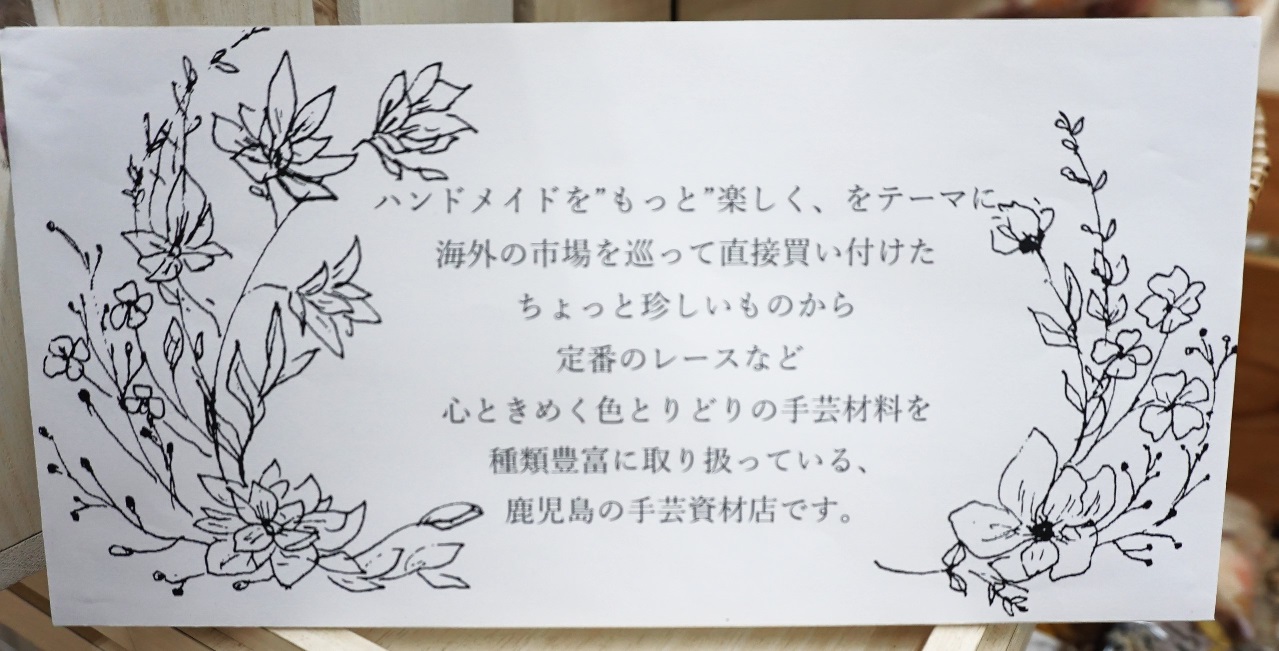 ハンドメイドを”もっと”楽しく、をテーマに
海外の市場を巡って直接買い付けた
ちょっと珍しいものから
定番のレースなど
心ときめく色とりどりの手芸材料を
種類豊富に取り扱っている、
鹿児島の手芸資材店です。